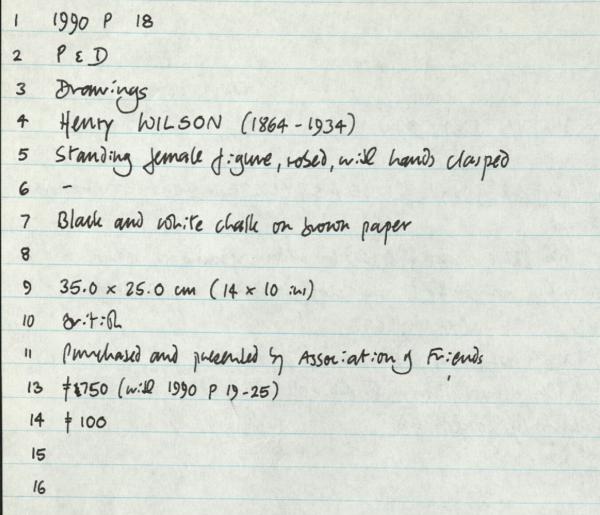 1 1990 P 18
2 P & D
3 Drawings
4 Henry WILSON (1864-1934)
5 Standing female figure, robed, with hands clasped
6 -
7 Black and white chalk on brown paper
8
9 35.0 x 25.0 cm (14 x 10 ins)
10 British
11 Purchased and presented by Association of Friends
13 750 (with 1990 P 19-25)
14 100
15
16